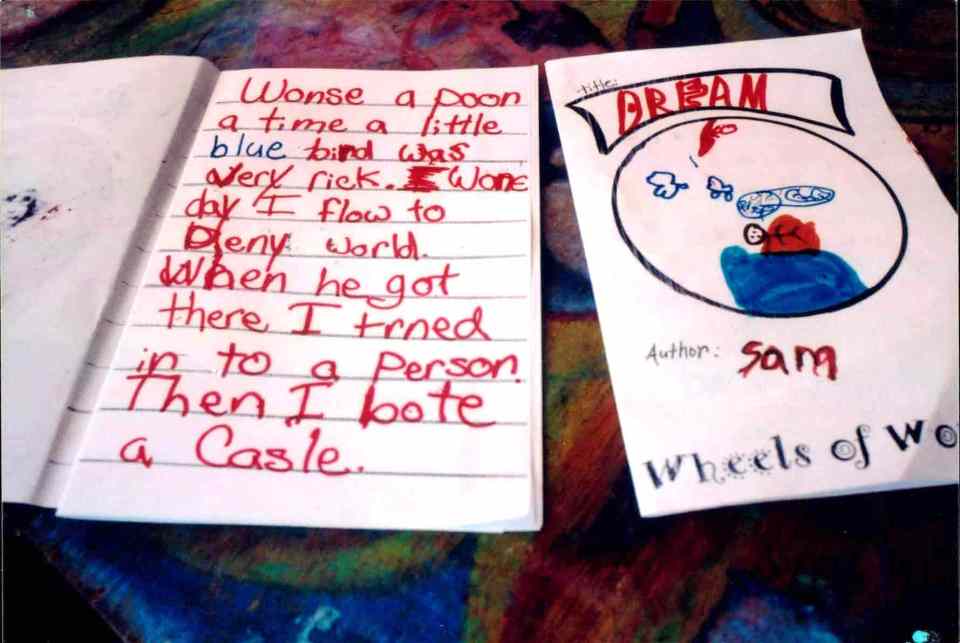 Wonse a poon
a time a little
blue bird was
very rick. Wone
day I flow to
Deny world.
When he got
there I trned
in to a person.
Then I bote
a Casle.
title:
DREAM
Author: Sam
Wheels of Wo